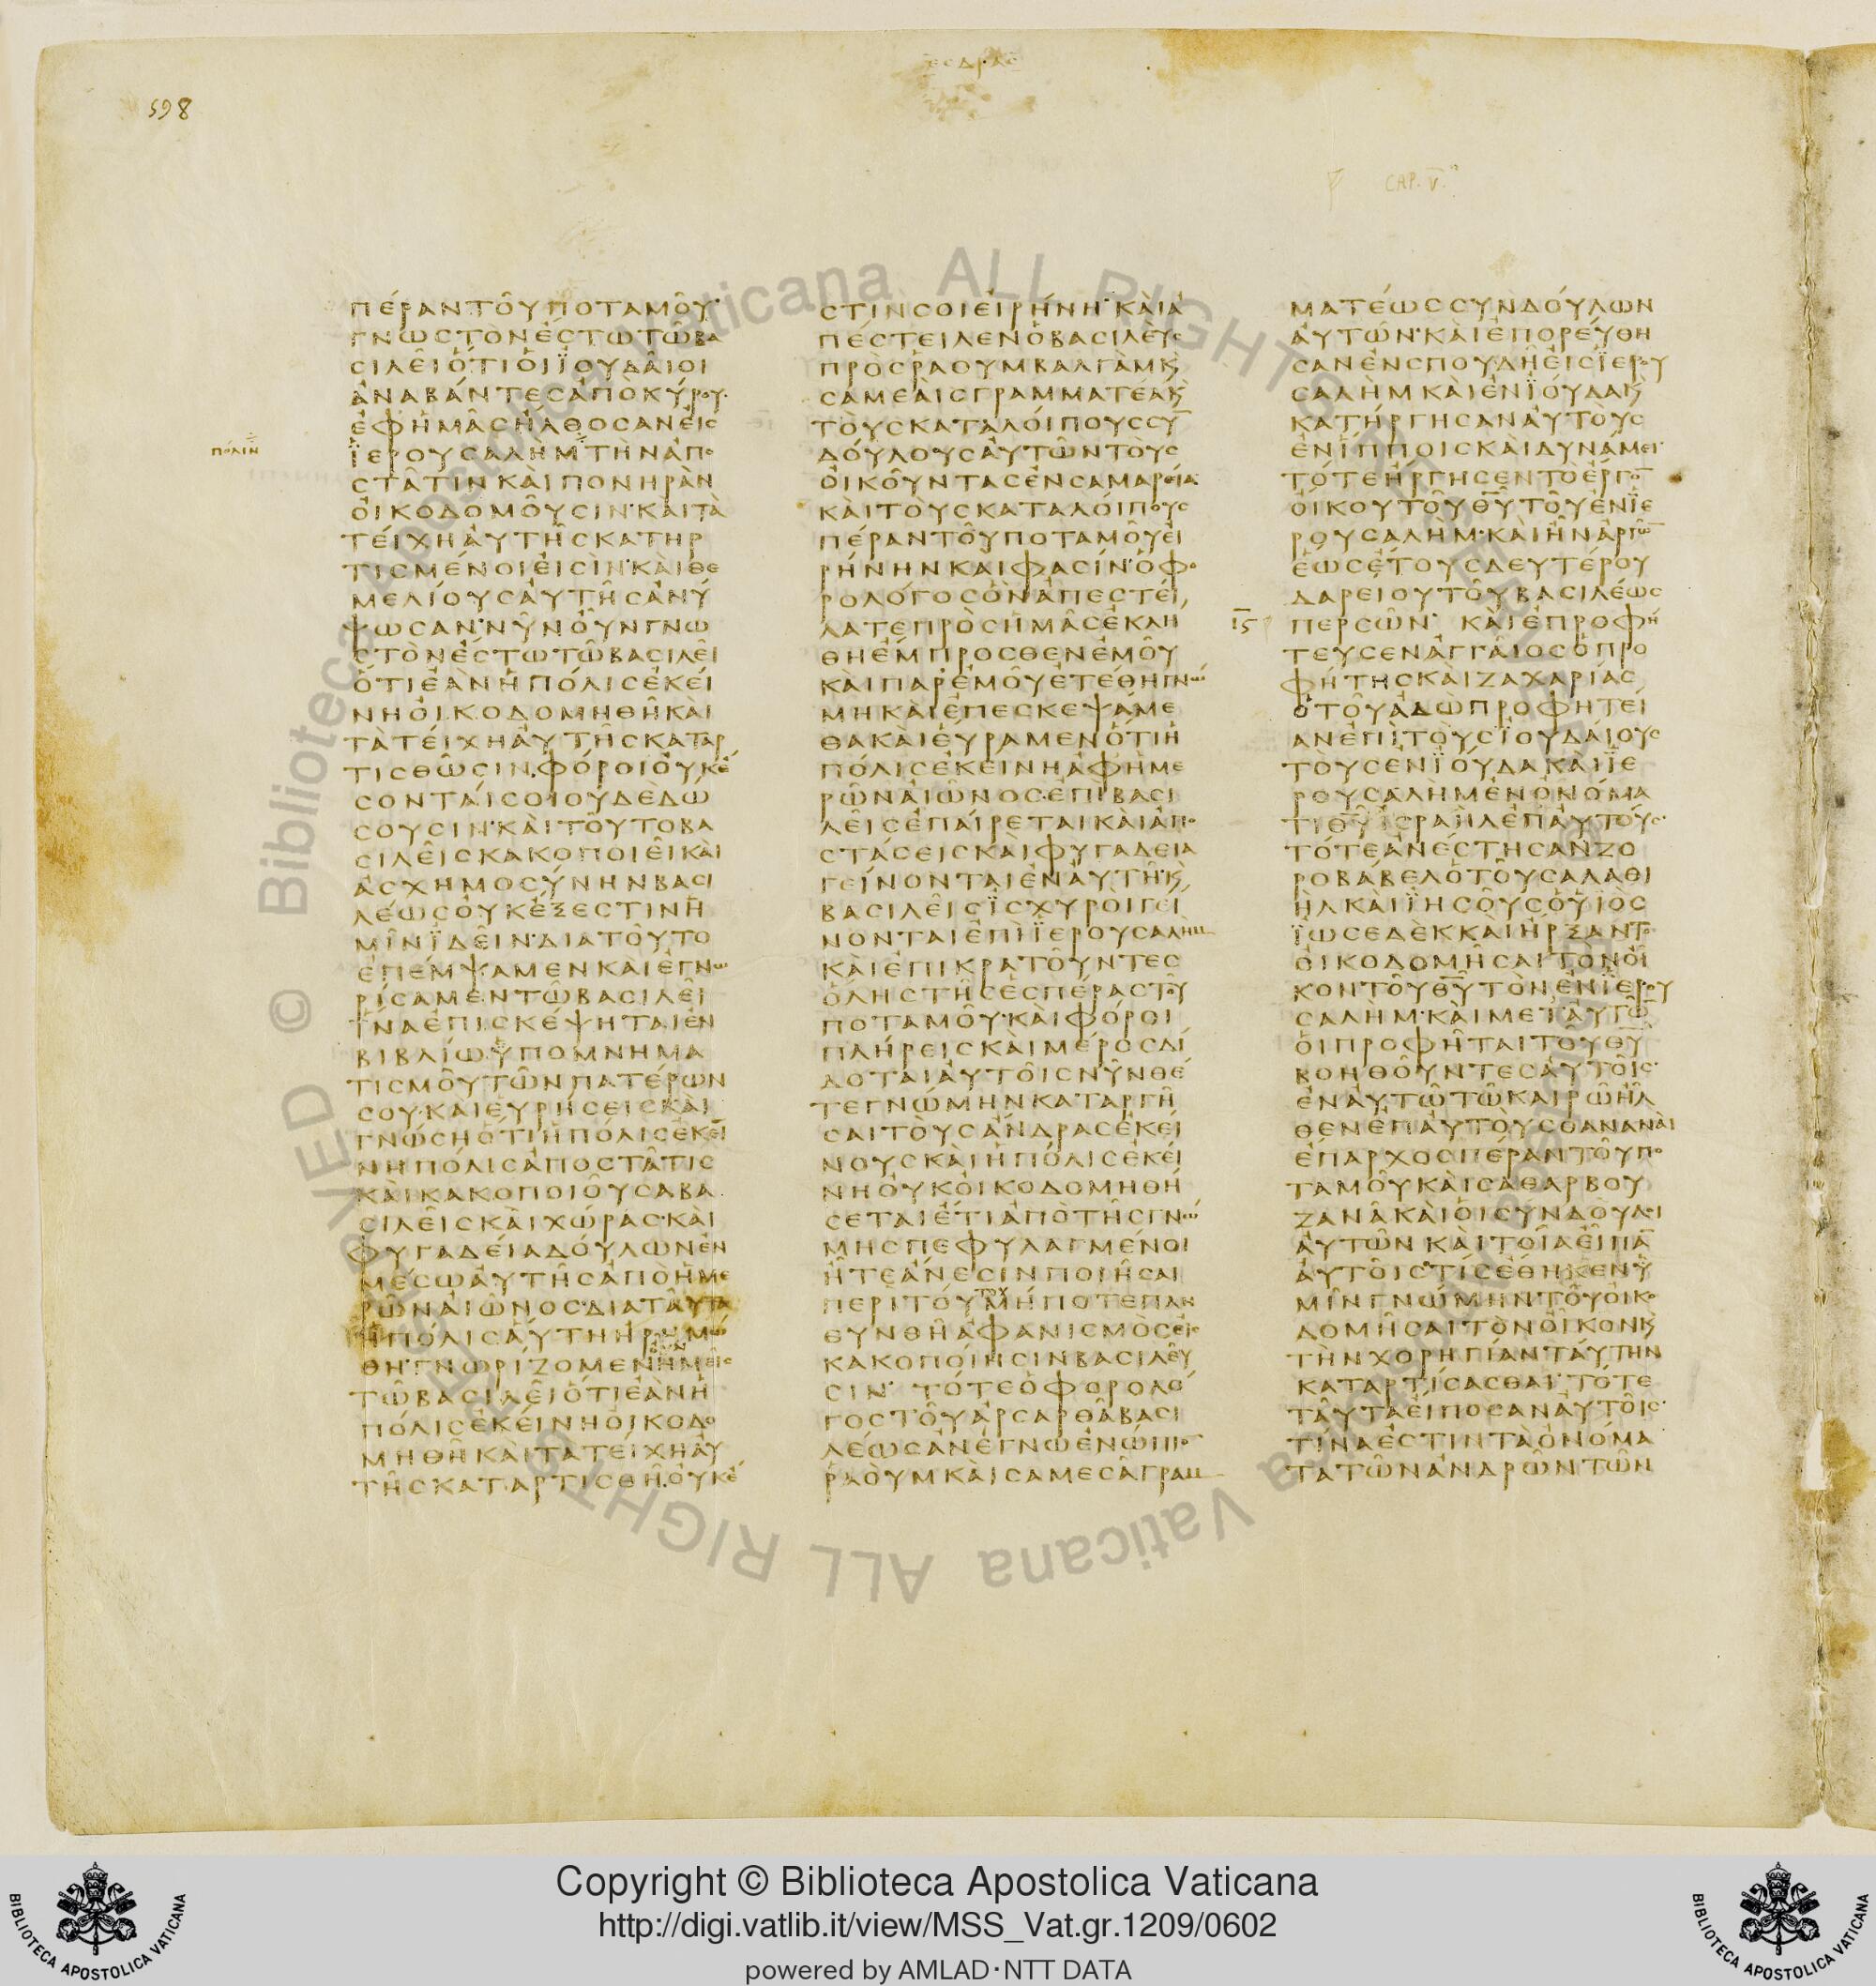 ΕΣΔΡΑΣ
598
CAP. V.
ΠΕΡΑΝΤΟΥΠΟΤΑΜΟΥ
ΓΝΩΣΤΟΝΕΣΤΩΤΩΒΑ
ΣΙΛΕΙΟΤΙΟΙΪΟΥΔΑΙΟΙ
ΑΝΑΒΑΝΤΕΣΑΠΟΚΥΡΟΥ
ΕΦΗΜΑΣΗΛΘΟΣΑΝΕΙΣ
ΠΟΛΙΝ
ΪΕΡΟΥΣΑΛΗΜΤΗΝΑΠΟ
ΣΤΑΤΙΝΚΑΙΠΟΝΗΡΑΝ
ΟΙΚΟΔΟΜΟΥΣΙΝ·ΚΑΙΤΑ
ΤΕΙΧΗΑΥΤΗΣΚΑΤΗΡ
ΤΙΣΜΕΝΟΙΕΙΣΙΝ·ΚΑΙΘΕ
ΜΕΛΙΟΥΣΑΥΤΗΣΑΝΥ
ΨΩΣΑΝ·ΝΥΝΟΥΝΓΝΩ
ΣΤΟΝΕΣΤΩΤΩΒΑΣΙΛΕΙ
ΟΤΙΕΑΝΗΠΟΛΙΣΕΚΕΙ
ΝΗΟΙΚΟΔΟΜΗΘΗΚΑΙ
ΤΑΤΕΙΧΗΑΥΤΗΣΚΑΤΑΡ
ΤΙΣΘΩΣΙΝ·ΦΟΡΟΙΟΥΚΕ
ΣΟΝΤΑΙΣΟΙΟΥΔΕΔΩ
ΣΟΥΣΙΝ·ΚΑΙΤΟΥΤΟΒΑ
ΣΙΛΕΙΣΚΑΚΟΠΟΙΕΙΚΑΙ
ΑΣΧΗΜΟΣΥΝΗΝΒΑΣΙ
ΛΕΩΣΟΥΚΕΞΕΣΤΙΝΗ
ΜΙΝΪΔΕΙΝ·ΔΙΑΤΟΥΤΟ
ΕΠΕΜΨΑΜΕΝΚΑΙΕΓΝΩ
ΡΙΣΑΜΕΝΤΩΒΑΣΙΛΕΙ
ΪΝΑΕΠΙΣΚΕΨΗΤΑΙΕΝ
ΒΙΒΛΙΩΥΠΟΜΝΗΜΑ
ΤΙΣΜΟΥΤΩΝΠΑΤΕΡΩΝ
ΣΟΥ·ΚΑΙΕΥΡΗΣΕΙΣΚΑΙ
ΓΝΩΣΗΟΤΙΗΠΟΛΙΣΕΚΕΙ
ΝΗΠΟΛΙΣΑΠΟΣΤΑΤΙΣ
ΚΑΙΚΑΚΟΠΟΙΟΥΣΑΒΑ
ΣΙΛΕΙΣΚΑΙΧΩΡΑΣ·ΚΑΙ
ΦΥΓΑΔΕΙΑΔΟΥΛΩΝΕΝ
ΜΕΣΩΑΥΤΗΣΑΠΟΗΜΕ
ΡΩΝΑΙΩΝΟΣ·ΔΙΑΤΑΥΤΑ
ΗΠΟΛΙΣΑΥΤΗΗΡΗΜΩ
ΘΗ·ΓΝΩΡΙΖΟΜΕΝΗΜΕΙΣ
ΤΩΒΑΣΙΛΕΙΟΤΙΕΑΝΗ
ΠΟΛΙΣΕΚΕΙΝΗΟΙΚΟΔΟ
ΜΗΘΗΚΑΙΤΑΤΕΙΧΗΑΥ
ΤΗΣΚΑΤΑΡΤΙΣΘΗ·ΟΥΚΕ
ΣΤΙΝΣΟΙΕΙΡΗΝΗ·ΚΑΙΑ
ΠΕΣΤΕΙΛΕΝΟΒΑΣΙΛΕΥΣ
ΠΡΟΣΡΑΟΥΜΒΑΛΓΑΜΚ
ΣΑΜΕΑΙΣΓΡΑΜΜΑΤΕΑΚ
ΤΟΥΣΚΑΤΑΛΟΙΠΟΥΣΣΥ̅
ΔΟΥΛΟΥΣΑΥΤΩΝΤΟΥΣ
ΟΙΚΟΥΝΤΑΣΕΝΣΑΜΑΡΕΙΑ
ΚΑΙΤΟΥΣΚΑΤΑΛΟΙΠΟΥΣ
ΠΕΡΑΝΤΟΥΠΟΤΑΜΟΥΕΙ
ΡΗΝΗΝΚΑΙΦΑΣΙΝ·ΟΦΟ
ΡΟΛΟΓΟΣΟΝΑΠΕΣΤΕΙ
ΛΑΤΕΠΡΟΣΗΜΑΣΕΚΛΗ
ΘΗΕΜΠΡΟΣΘΕΝΕΜΟΥ
ΚΑΙΠΑΡΕΜΟΥΕΤΕΘΗΓΝΩ
ΜΗΚΑΙΕΠΕΣΚΕΨΑΜΕ
ΘΑΚΑΙΕΥΡΑΜΕΝΟΤΙΗ
ΠΟΛΙΣΕΚΕΙΝΗΑΦΗΜΕ
ΡΩΝΑΙΩΝΟΣ·ΕΠΙΒΑΣΙ
ΛΕΙΣΕΠΑΙΡΕΤΑΙΚΑΙΑΠΟ
ΣΤΑΣΕΙΣΚΑΙΦΥΓΑΔΕΙΑ
ΓΕΙΝΟΝΤΑΙΕΝΑΥΤΗ·Κ
ΒΑΣΙΛΕΙΣΪΣΧΥΡΟΙΓΕΙ
ΝΟΝΤΑΙΕΠΙΪΕΡΟΥΣΑΛΗΜ
ΚΑΙΕΠΙΚΡΑΤΟΥΝΤΕΣ
ΟΛΗΣΤΗΣΕΣΠΕΡΑΣΤΟΥ
ΠΟΤΑΜΟΥ·ΚΑΙΦΟΡΟΙ
ΠΛΗΡΕΙΣΚΑΙΜΕΡΟΣΔΙ
ΔΟΤΑΙΑΥΤΟΙΣΝΥΝΘΕ
ΤΕΓΝΩΜΗΝΚΑΤΑΡΓΗ
ΣΑΙΤΟΥΣΑΝΔΡΑΣΕΚΕΙ
ΝΟΥΣΚΑΙΗΠΟΛΙΣΕΚΕΙ
ΝΗΟΥΚΟΙΚΟΔΟΜΗΘΗ
ΣΕΤΑΙΕΤΙΑΠΟΤΗΣΓΝΩ
ΜΗΣΠΕΦΥΛΑΓΜΕΝΟΙ
ΗΤΕΑΝΕΣΙΝΠΟΙΗΣΑΙ
ΠΕΡΙΤΟΥΤΟΥΜΗΠΟΤΕΠΛΗ
ΘΥΝΘΗΑΦΑΝΙΣΜΟΣΕΙΣ
ΚΑΚΟΠΟΙΗΣΙΝΒΑΣΙΛΕΥ
ΣΙΝ· ΤΟΤΕΟΦΟΡΟΛΟ
ΓΟΣΤΟΥΑΡΣΑΡΘΑΒΑΣΙ
ΛΕΩΣΑΝΕΓΝΩΕΝΩΠΙΟ̅
ΡΑΟΥΜΚΑΙΣΑΜΕΣΑΓΡΑΜ
ΜΑΤΕΩΣΣΥΝΔΟΥΛΩΝ
ΑΥΤΩΝ·ΚΑΙΕΠΟΡΕΥΘΗ
ΣΑΝΕΝΣΠΟΥΔΗΕΙΣΪΕΡΟΥ
ΣΑΛΗΜΚΑΙΕΝΪΟΥΔΑΚ
ΚΑΤΗΡΓΗΣΑΝΑΥΤΟΥΣ
ΕΝΪΠΠΟΙΣΚΑΙΔΥΝΑΜΕΙ·
ΤΟΤΕΗΡΓΗΣΕΝΤΟΕΡΓΟ̅
ΟΙΚΟΥΤΟΥΘ̅Υ̅ΤΟΥΕΝΪΕ
ΡΟΥΣΑΛΗΜ·ΚΑΙΗΝΑΡΓΩ̅
ΕΩΣΕΤΟΥΣΔΕΥΤΕΡΟΥ
ΔΑΡΕΙΟΥΤΟΥΒΑΣΙΛΕΩΣ
Ι̅Ϛ̅ ΠΕΡΣΩΝ· ΚΑΙΕΠΡΟΦΗ
ΤΕΥΣΕΝΑΓΓΑΙΟΣΟΠΡΟ
ΦΗΤΗΣΚΑΙΖΑΧΑΡΙΑΣ
ΟΤΟΥΑΔΩΠΡΟΦΗΤΕΙ
ΑΝΕΠΙΤΟΥΣΪΟΥΔΑΙΟΥΣ
ΤΟΥΣΕΝΪΟΥΔΑΚΑΙΪΕ
ΡΟΥΣΑΛΗΜΕΝΟΝΟΜΑ
ΤΙΘ̅Υ̅ΙΣΡΑΗΛΕΠΑΥΤΟΥΣ·
ΤΟΤΕΑΝΕΣΤΗΣΑΝΖΟ
ΡΟΒΑΒΕΛΟΤΟΥΣΑΛΑΘΙ
ΗΛΚΑΙΪΗΣΟΥΣΟΥΪΟΣ
ΪΩΣΕΔΕΚΚΑΙΗΡΞΑΝΤΟ
ΟΙΚΟΔΟΜΗΣΑΙΤΟΝΟΙ
ΚΟΝΤΟΥΘ̅Υ̅ΤΟΝΕΝΪΕΡΟΥ
ΣΑΛΗΜ·ΚΑΙΜΕΤΑΥΤΩ̅
ΟΙΠΡΟΦΗΤΑΙΤΟΥΘ̅Υ̅
ΒΟΗΘΟΥΝΤΕΣΑΥΤΟΙΣ·
ΕΝΑΥΤΩΤΩΚΑΙΡΩΗΛ
ΘΕΝΕΠΑΥΤΟΥΣΘΑΝΑΝΑΙ
ΕΠΑΡΧΟΣΠΕΡΑΝΤΟΥΠΟ
ΤΑΜΟΥΚΑΙΣΑΘΑΡΒΟΥ
ΖΑΝΑΚΑΙΟΙΣΥΝΔΟΥΛΟΙ
ΑΥΤΩΝΚΑΙΤΟΙΑΕΙΠΑ̅
ΑΥΤΟΙΣΤΙΣΕΘΗΚΕΝΫ
ΜΙΝΓΝΩΜΗΝΤΟΥΟΙΚΟ
ΔΟΜΗΣΑΙΤΟΝΟΙΚΟΝΚ
ΤΗΝΧΟΡΗΓΙΑΝΤΑΥΤΗΝ
ΚΑΤΑΡΤΙΣΑΣΘΑΙ·ΤΟΤΕ
ΤΑΥΤΑΕΙΠΟΣΑΝΑΥΤΟΙΣ·
ΤΙΝΑΕΣΤΙΝΤΑΟΝΟΜΑ
ΤΑΤΩΝΑΝΔΡΩΝΤΩΝ
© Biblioteca Apostolica Vaticana ALL RIGHTS RESERVED
Copyright © Biblioteca Apostolica Vaticana
http://digi.vatlib.it/view/MSS_Vat.gr.1209/0602
powered by AMLAD·NTT DATA
BIBLIOTECA APOSTOLICA VATICANA
BIBLIOTECA APOSTOLICA VATICANA